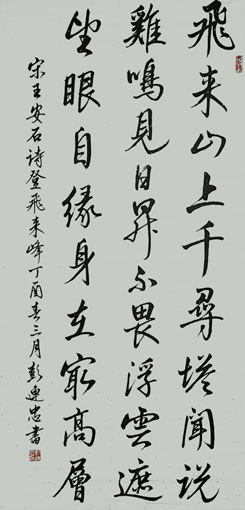 飛来山上千尋塔聞說
雞鳴見日昇不畏浮雲遮
望眼自緣身在最高層
宋王安石诗登飛来峰丁酉春三月彭連忠書